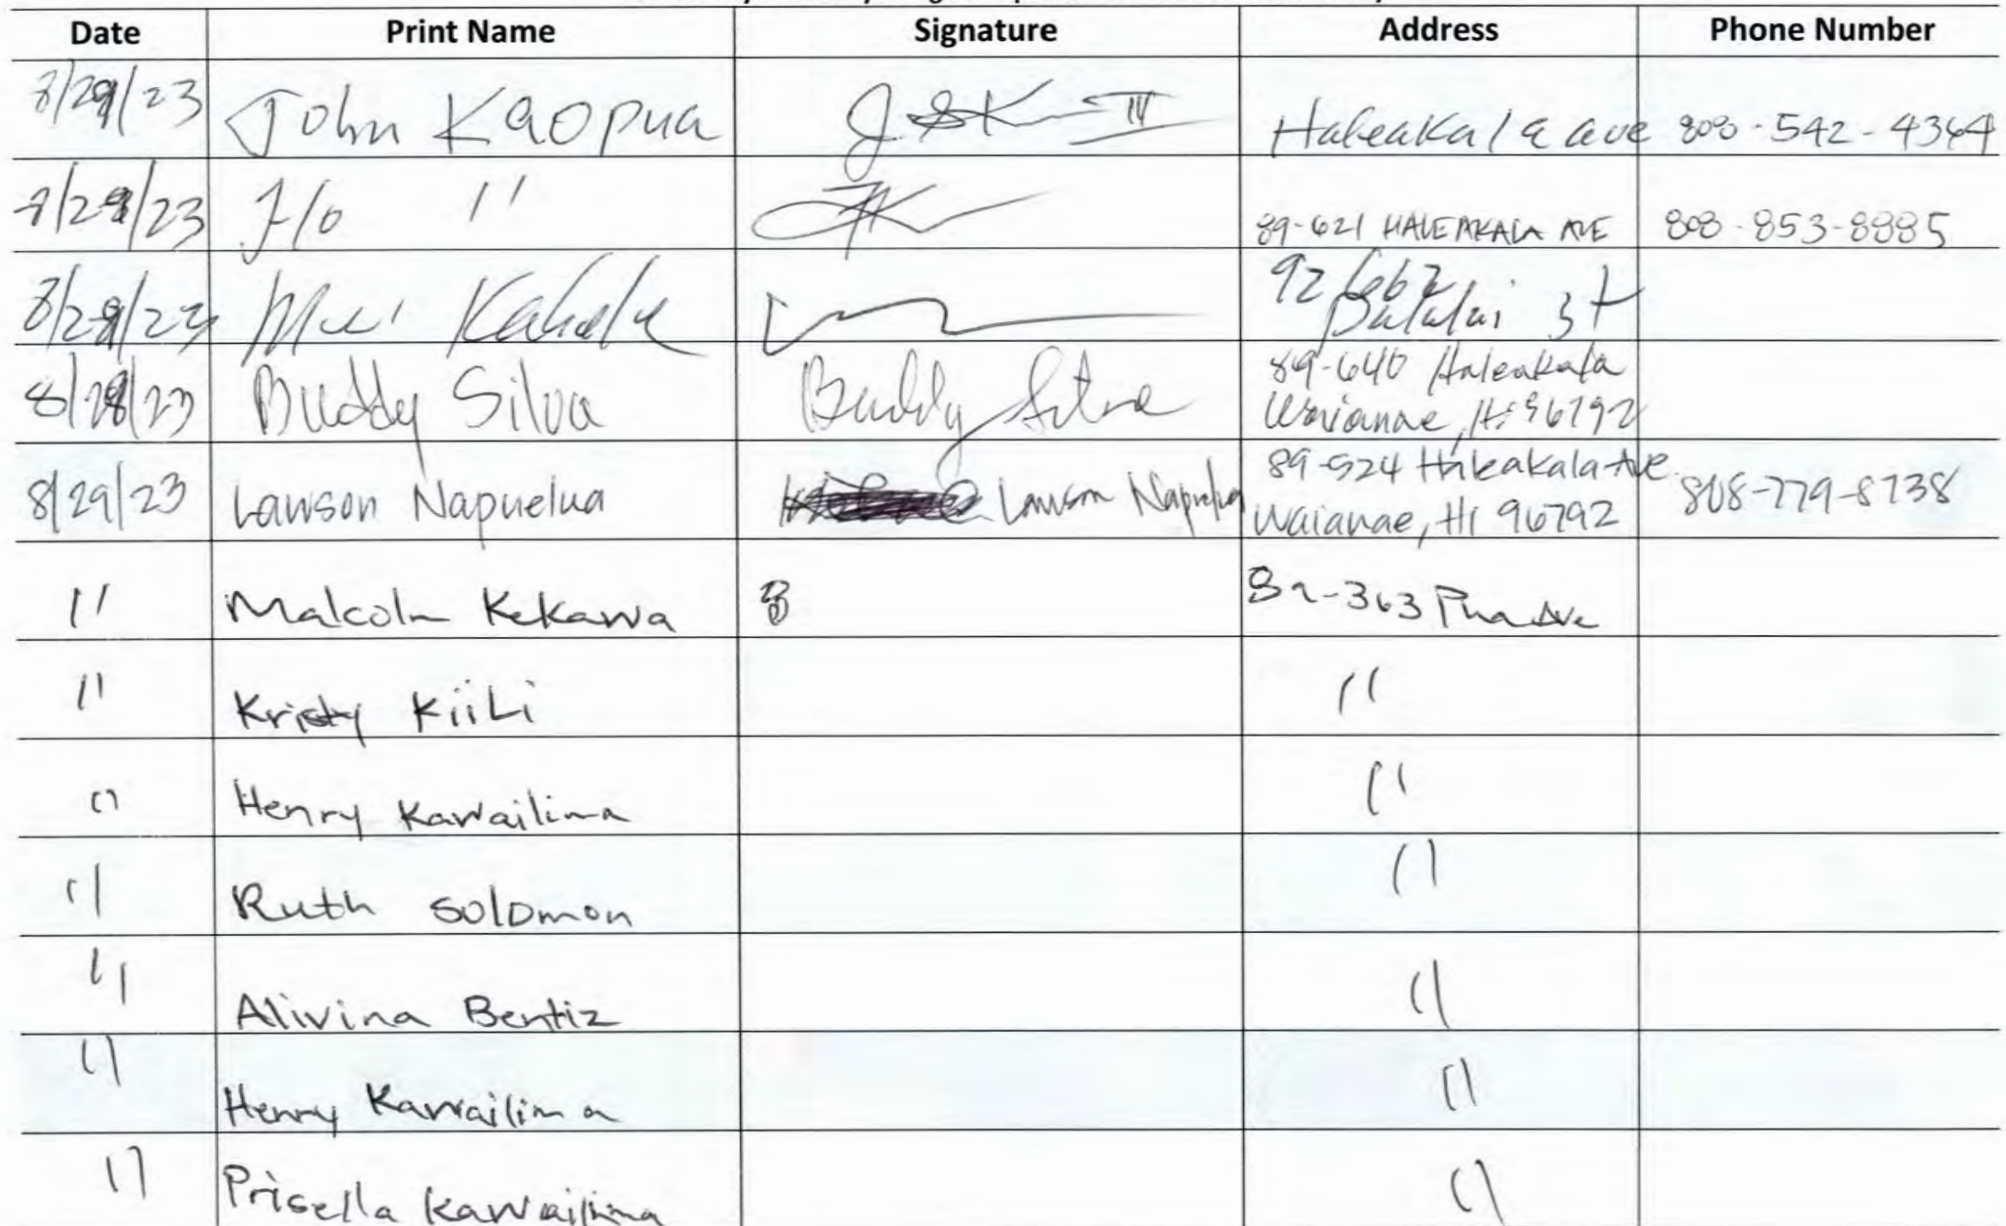 Date Print Name Signature Address Phone Number
8/29/23 John Kaopua Haleakala ave 808-542-4364
8/29/23 " 89-621 HALEAKALA AVE 808-853-8885
8/29/23 92 St
8/29/23 Buddy Silva Buddy Silva 89-640 Haleakala
Waianae, Hi 96792
8/29/23 Lawson Napuelua Lawson Napuelua 89-524 Haleakala Ave
Waianae, HI 96792 808-779-8738
" Malcolm Kekawa 89-363 Pua Ave
" Kristy KiiLi "
" Henry Kawailima "
" Ruth Solomon "
" Alivina Bentiz "
" Henry Kawailima "
" Prisella Kawailima "